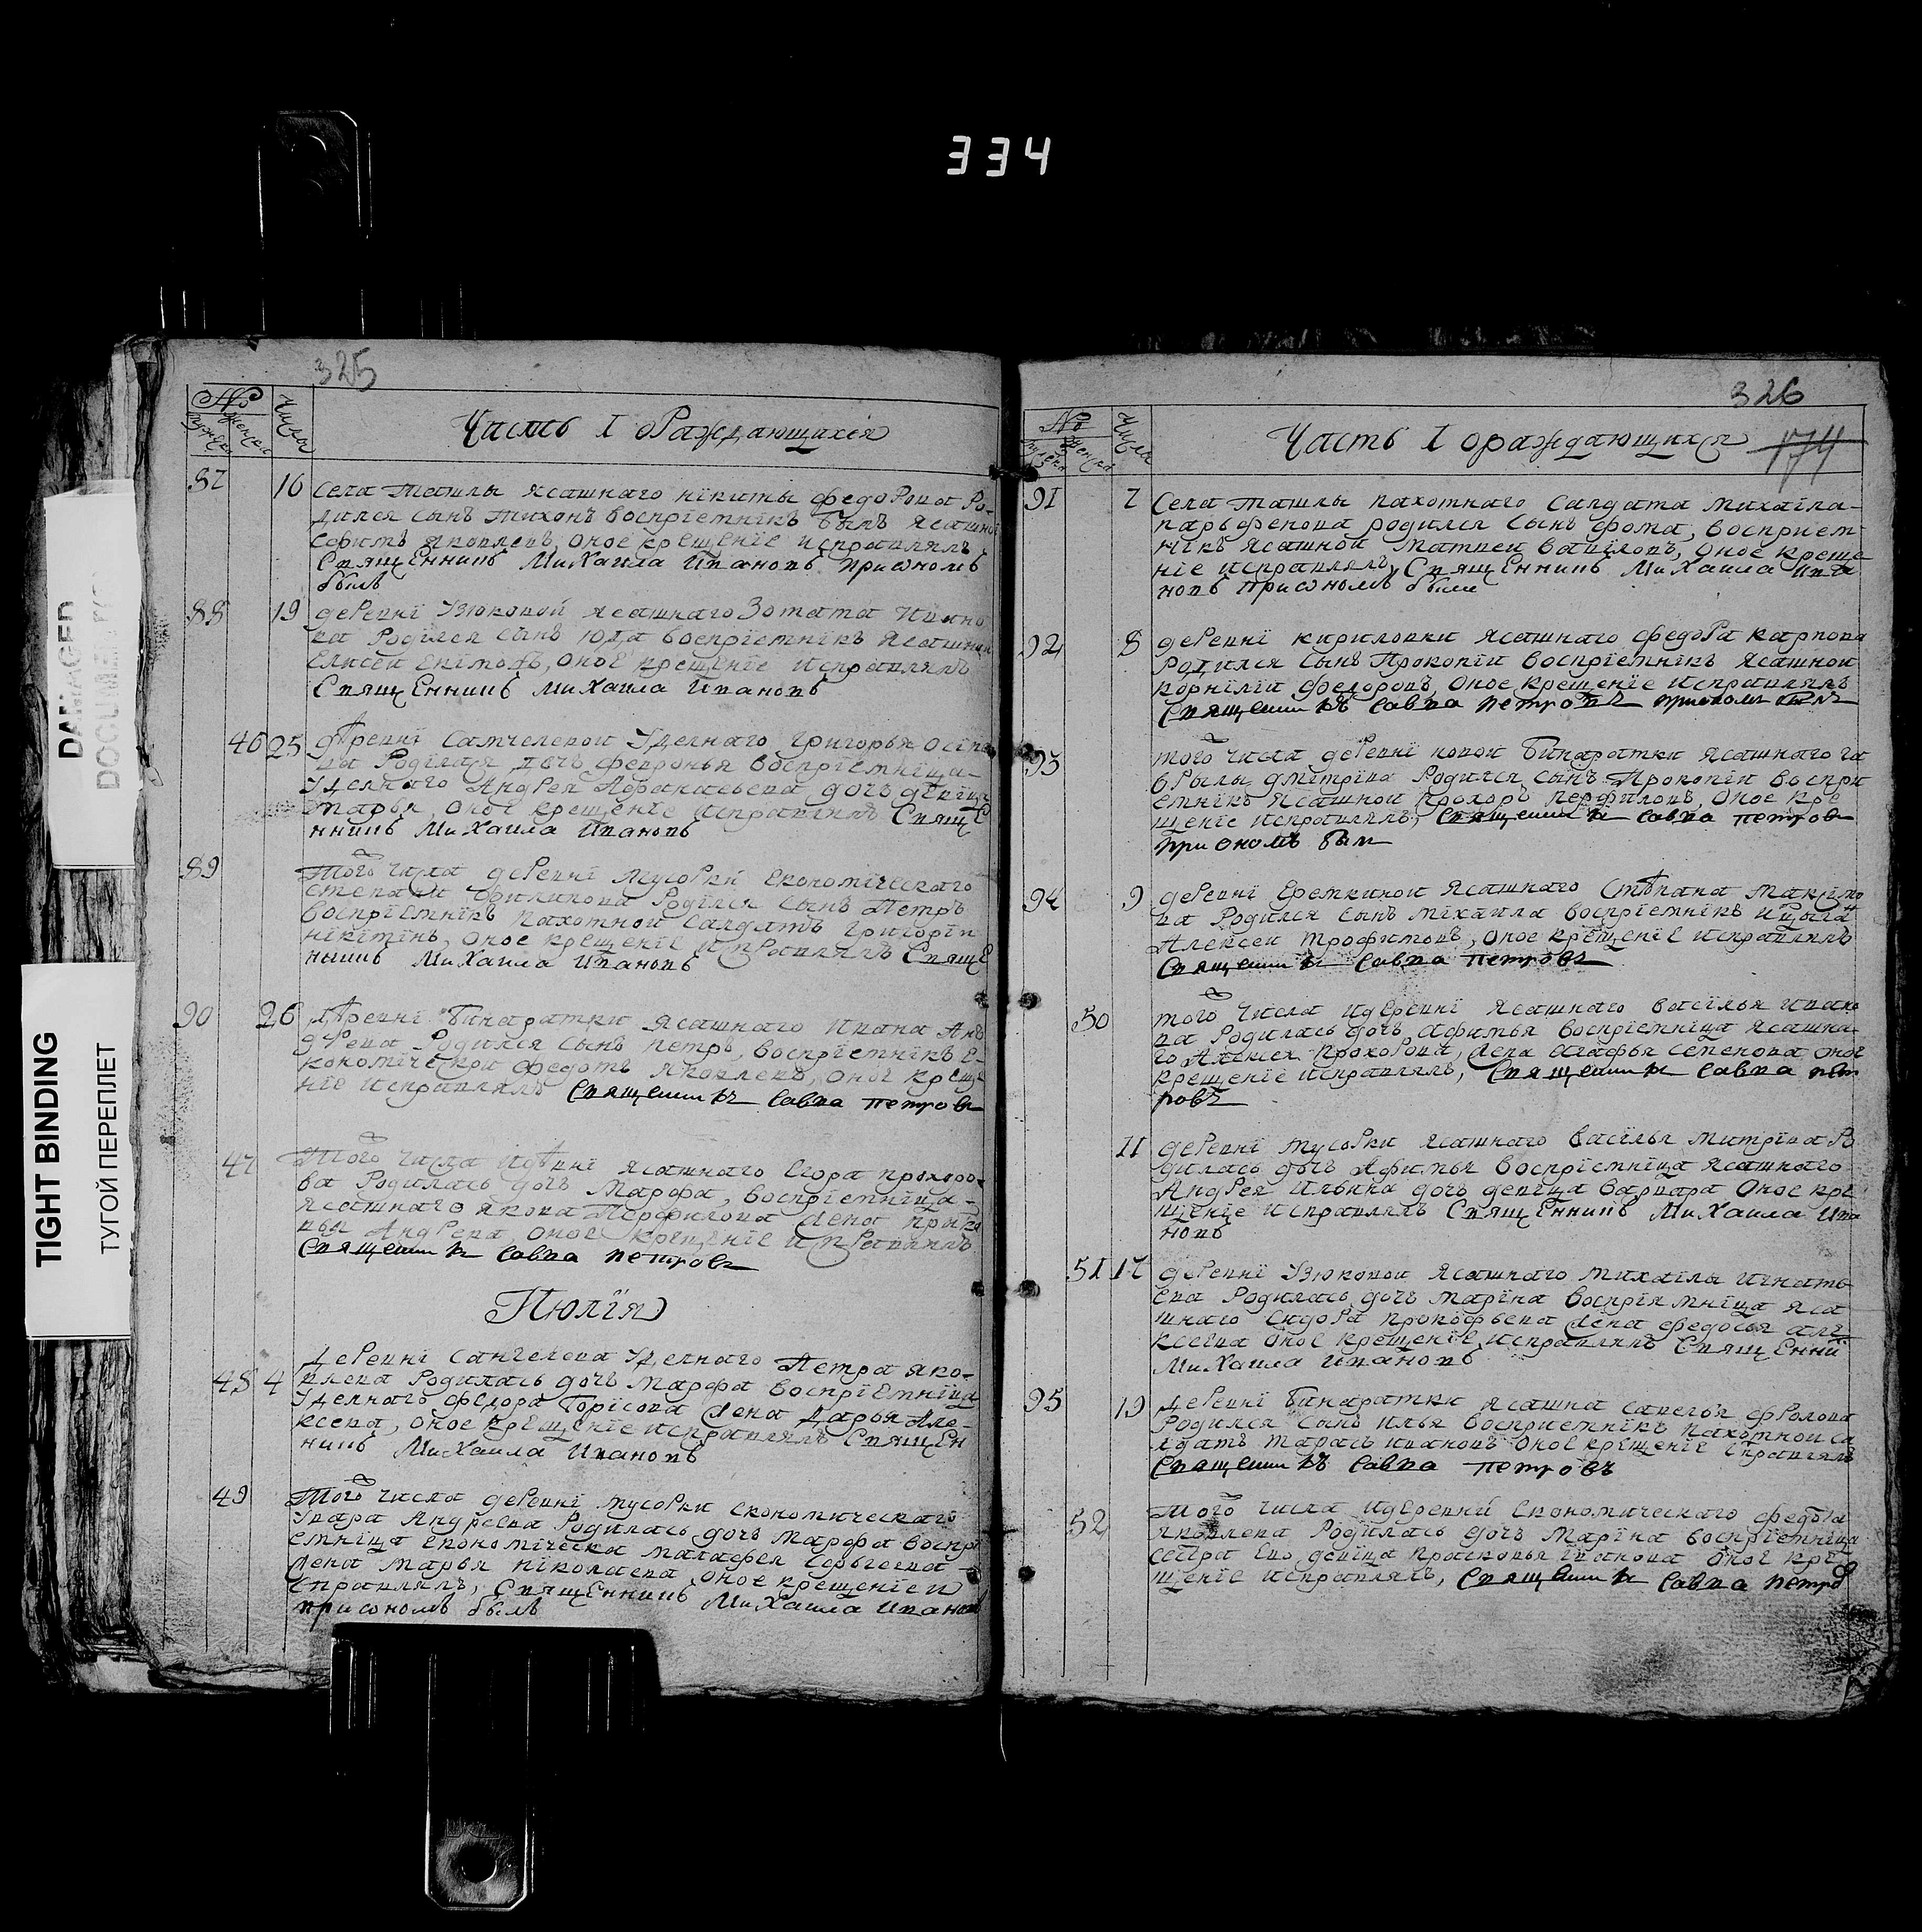 334
DAMAGED
TIGHT BINDING
ТУГОЙ ПЕРЕПЛЕТ
325
№
Числа
Часть I о Раждающихся
87 16 Села Ташлы ясашнаго никиты федорова Ро-
дился сынъ Тихонъ воспрїемникъ былъ ясашной
Ефимъ яковлевъ, оное крещенїе исправлялъ
Священникъ Михаила Ивановъ при ономъ
былъ
88 19 деревнї Узюковой ясашнаго Зотата Ивано
ва Родился сынъ Юда воспрїемнїкъ ясашной
Елисей екїмовъ, оное крещенїе исправлялъ
Священникъ Михаила Ивановъ
46 25 деревнї Самчелевой Уделнаго григорья осїпо
ва Родїлася дочь февронья воспрїемнїца
Уделнаго Андрея Афанасьева дочь девица
марья, оное крещенїе исправлялъ Свяще
нникъ Михаила Ивановъ
89 Того числа деревнї Мусорки Економїческаго
степана филипова Родїлся сынъ Петръ
воспрїемнїкъ пахотной Салдатъ григорїй
нїкїтїнъ, оное крещенїе исправлялъ Свяще
нникъ Михаила Ивановъ
90 26 деревнї Бинаратки ясашнаго Ивана Ан
дреева Родился сынъ петръ, воспрїемнїкъ Е-
кономїческой федотъ яковлевъ, оное креще
нїе исправлялъ Священникъ Савва Петровъ
47 Того числа идеревнї ясашнаго Егора прохоро-
ва Родилась дочь Марфа, воспрїемнїца
ясашнаго якова Перфилова жена праско
вья Андреева, оное крещенїе исправлялъ
Священникъ Савва петровъ
Июлїя
48 4 деревнї Сангелева Уделнаго Петра яко-
влева Родилась дочь Марфа воспрїемнїца
Уделнаго федора Борїсова жена дарья Але-
ксеева, оное крещенїе исправлялъ Священ
никъ Михаила Ивановъ
49 Того числа деревнї мусорки економическаго
Увара Андреева Родилась дочь марфа воспрї
емнїца економїческа малафея Сергеева
жена марья нїколаева оное крещенїе и
справлялъ, Священникъ Михаила Ивановъ
при ономъ былъ
326
№
Числа
Часть I о раждающихся 174
91 7 Села ташлы пахотнаго Салдата михаїла
парьфенова родился сынъ фома, воспрїем-
нїкъ ясашной матвей вавїловъ, оное креще
нїе исправлялъ Священникъ Михаила Ива
новъ при ономъ были
92 8 деревнї кириловки ясашнаго федора карпова
родился сынъ Прокопїй воспрїемнїкъ ясашной
корнїлїй федоровъ, оное крещенїе исправлялъ
Священникъ Савва петровъ при ономъ былъ
93 того числа деревнї новой Бинаратки ясашнаго га
врылы дмїтрїева Родился сынъ Прокопїй воспрї
емнїкъ ясашной прохоръ перфиловъ, оное кре
щенїе исправлялъ, Священникъ Савва петровъ
при ономъ былъ
94 9 деревнї Еремкиной ясашнаго Степана максїмо
ва Родился сынъ мїхаила воспрїемнїкъ
Алексей трофимовъ, оное крещенїе исправлялъ
Священникъ Савва петровъ
50 того числа идеревнї ясашнаго васїлья ивано
ва Родилась дочь Афимья воспрїемнїца ясашна-
го Алексея прохорова, жена агафья семенова оное
крещенїе исправлялъ, Священникъ Савва пет
ровъ
11 деревнї мусорки ясашнаго васїлья митрїева Ро
дилась дочь Афимья воспрїемнїца ясашнаго
Андрея ильина дочь девїца варвара оное кре
щенїе исправлялъ Священникъ Михаила Ива
новъ
51 17 деревнї Узюковой ясашнаго михаїлы игнать
ева Родилась дочь марїна воспрїемнїца яса
шнаго сидора прокофьева жена федосья але
ксеева оное крещенїе исправлялъ Священни
Михаила Ивановъ
95 19 деревнї Бинаратки ясашна савелья фролова
Родился сынъ илья воспрїемнїкъ пахотной са
лдатъ тарасъ ивановъ оное крещенїе справлялъ
Священникъ Савва петровъ
52 того числа идеревнї економическаго федота
яковлева Родилась дочь марїна воспрїемнїца
сестра Ево девїца прасковья иванова оное кре
щенїе исправлялъ, Священникъ Савва петро